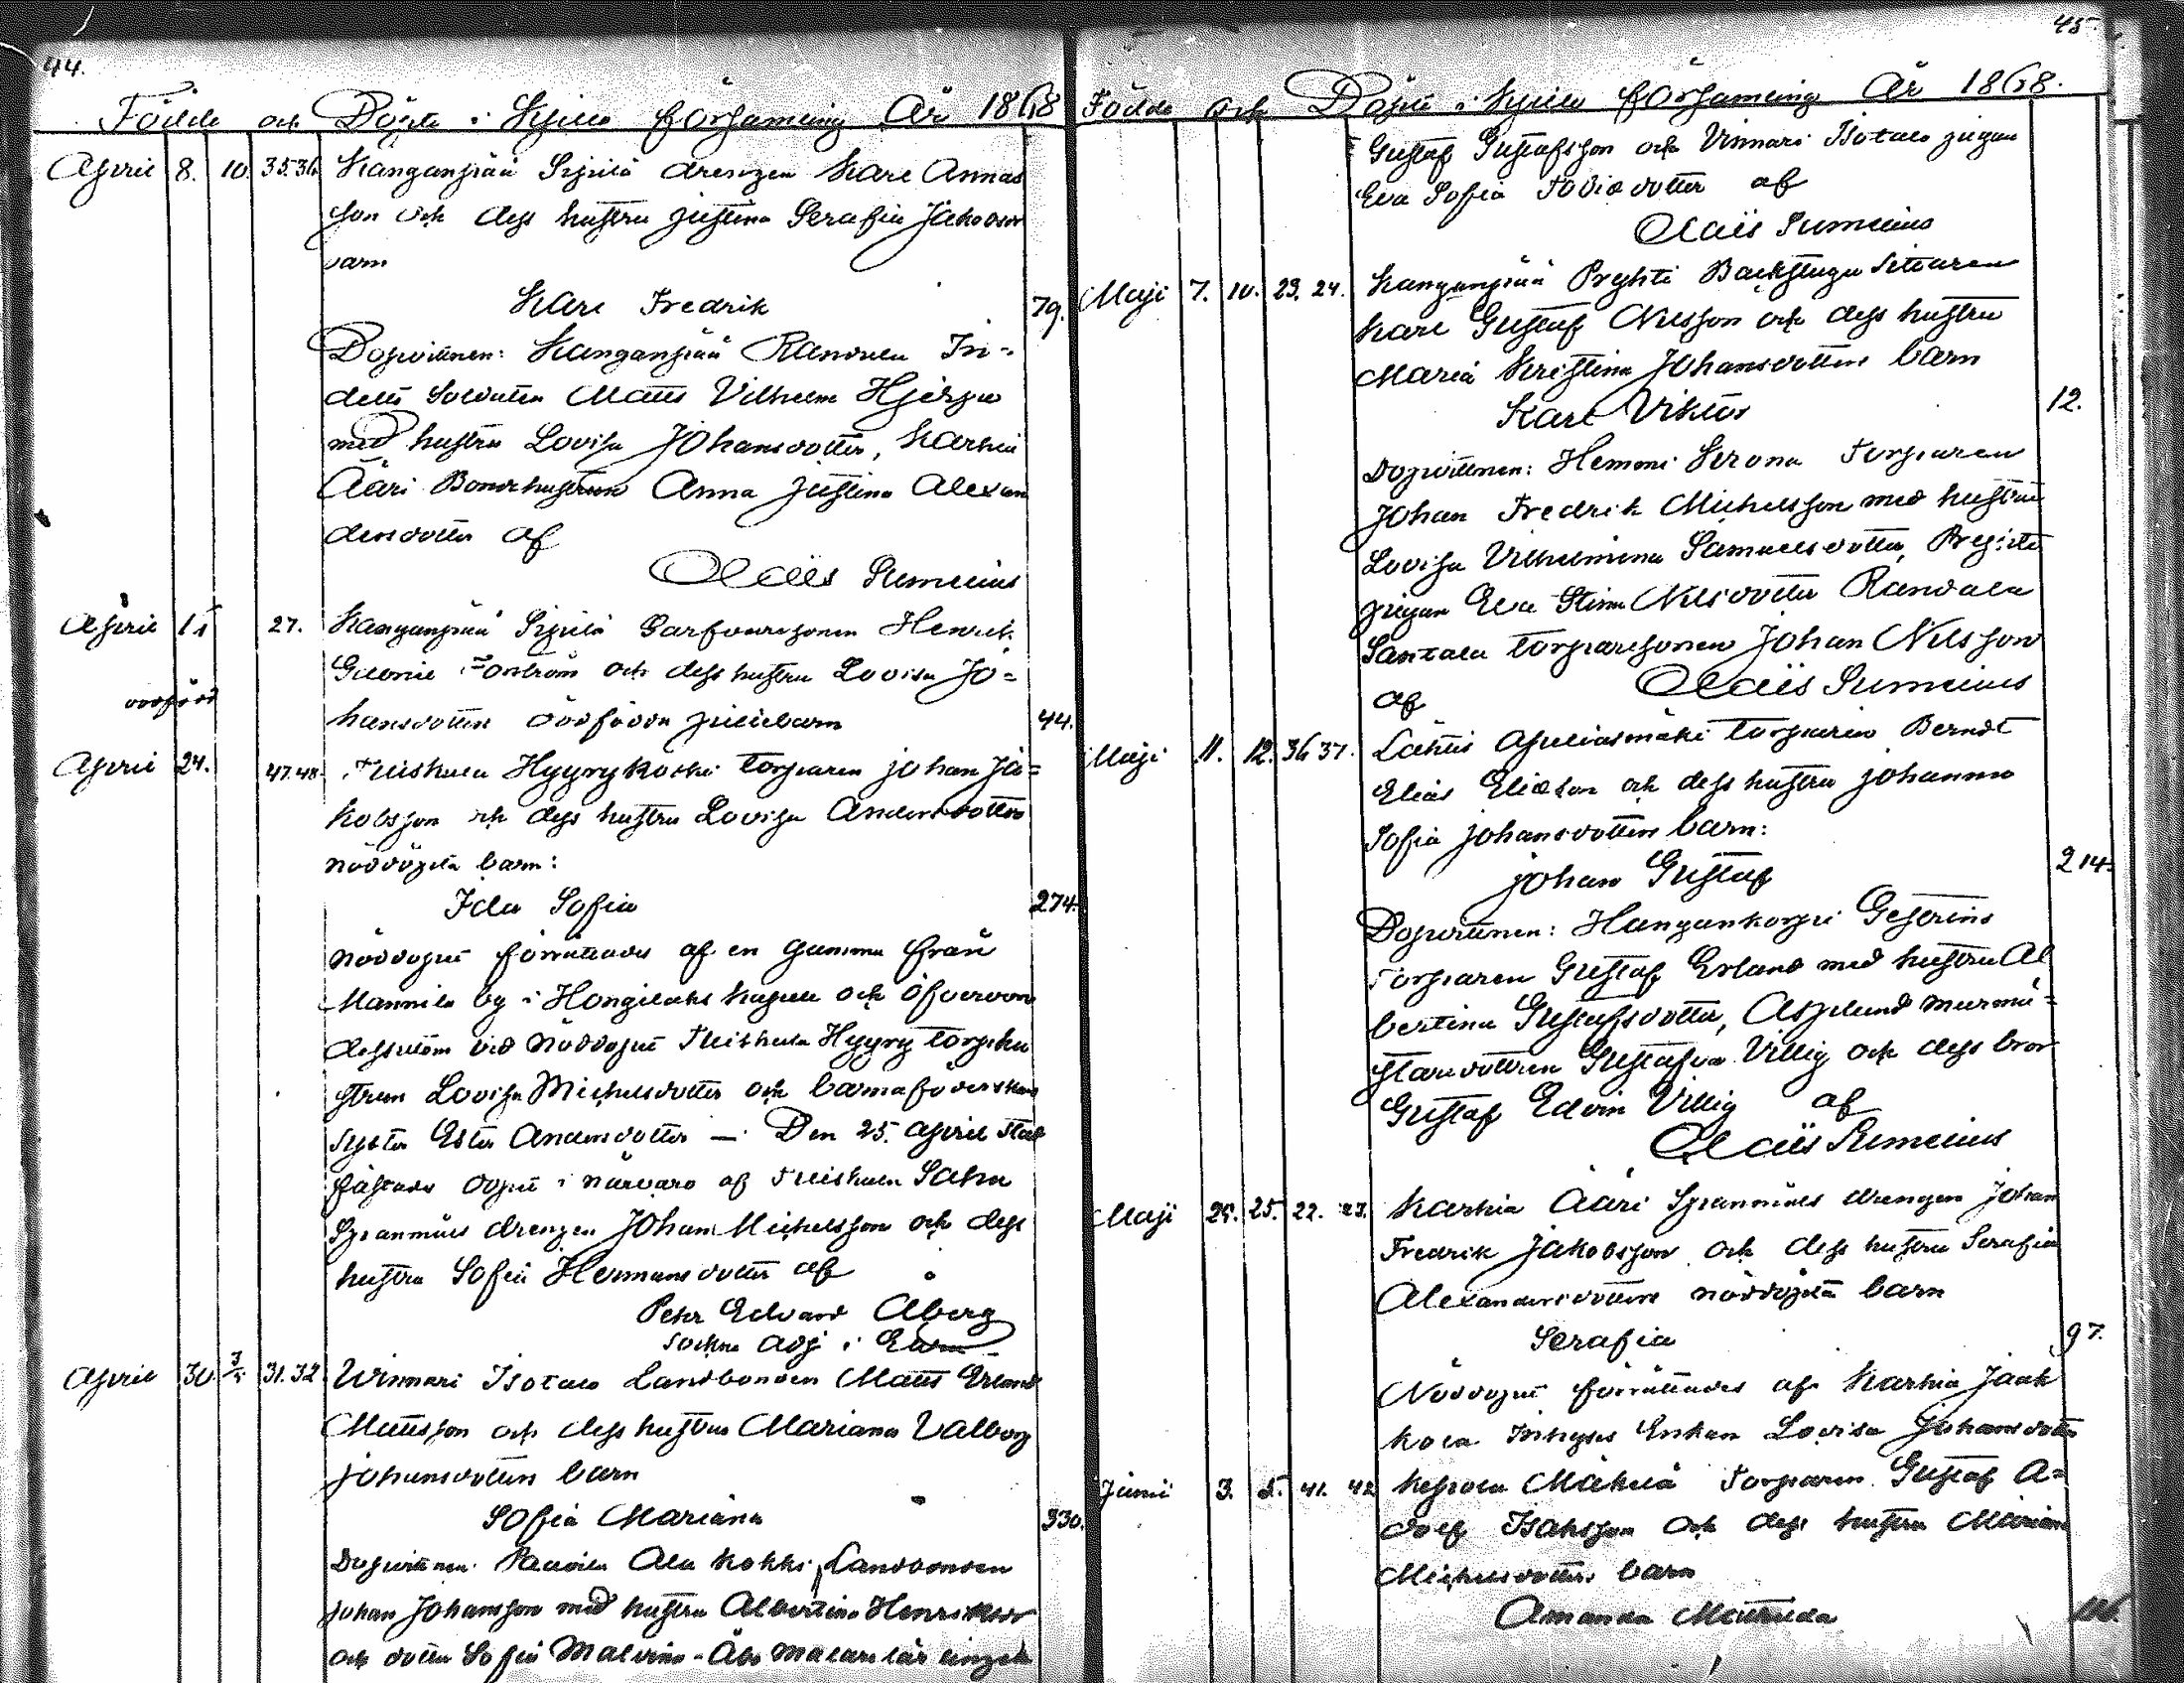 44.
Födde och Döpte i Kjulo församling År 1868
April 8. 10. 35.36. Kanganpää Sipilä drengen Karl Annas
son och dess hustru Justina Serafia Jakobsd
barn
Karl Fredrik 79.
Dopvittnen: Kanganpää Randula In=
delta Soldaten Matts Vilhelm Hjerpe
med hustru Lovisa Johansdotter, Karhia
Ääri Bondehustrun Anna Justina Alexan
dersdotter af
Olaus Sumelius
April 15 27. Kanganpää Sipilä Garfvaresonen Henrik
Forström och dess hustru Lovisa Jo=
dödfödd
hansdotters dödfödda 44.
April 24. 47.48. Tuiskula Hyyrykoski torparen Johan Ja=
kobsson och dess hustru Lovisa Andersdotters
nöddöpta barn:
Ida Sofia 274.
Nöddopet förrättades af en gumma från
Mannila by i Hongilaks kapell och öfvervoro
dessutom vid nöddopet Tuiskula Hyyry torparehu
strun Lovisa Michelsdotter och barnaföderskans
syster Ester Andersdotter — Den 25. April stad
fästades dopet i närvaro af Tuiskula Sahn
Spannmåls drengen Johan Michelsson och dess
hustru Sofia Hermansdotter af
Petr Edvard Åberg
Sockne Adj. i Eura
April 30. 3/5 31.32 Vinnari Isotalo Landbonden Matts Erland
Mattsson och dess hustrus Mariana Valborg
Johansdotters barn
Sofia Mariana 330.
Dopvittnen: Paavila Ala Kokki Landbonden
Johan Johansson med hustru Albertina Henriksdr
och dotter Sofia Malvina. Åbo Målare lärlingen
45.
Födde och Döpte i Kjulo församling År 1868.
Gustaf Gustafsson och Vinnari Isotalo pigan
Eva Sofia Toviasdotter af
Olaus Sumelius
Maji 7. 10. 23. 24. Kanganpää Pryhti Backstugu Sittaren
Karl Gustaf Nilsson och dess hustru
Maria Kristina Johansdotters barn
Karl Viktor 12.
Dopvittnen: Hemmi Krona Torparen
Johan Fredrik Michelsson med hustru
Lovisa Vilhelmina Samuelsdotter, Pryhti
pigan Eva Stina Nilsdotter Randala
Santala torparesonen Johan Nilsson
af Olaus Sumelius
Maji 11. 12. 36 37. Lähtis Apuliasmäki torparen Berndt
Elias Eliasson och dess hustru Johanna
Sofia Johansdotters barn:
Johan Gustaf 214.
Dopvittnen: Hangankorpi Gestrins
torparen Gustaf Erland med hustru Al
bertina Gustafsdotter, Asplund murmä=
staredottren Gustafva Villig och dess bror
Gustaf Edvin Villig af
Olaus Sumelius
Maji 24. 25. 22. 23. Karhia Ääri Spannmåls drengen Johan
Fredrik Jakobsson och dess hustru Serafia
Alexandersdotters nöddöpta barn
Serafia 97.
Nöddopet förrättades af Karhia Jaak
kola Inhyses Enkan Lovisa Johansdotter
Junii 3. 5. 41. 42 Kepola Mäkilä Torparen Gustaf A=
dolf Isaksson och dess hustru Maria
Michelsdotters barn
Amanda Mathilda